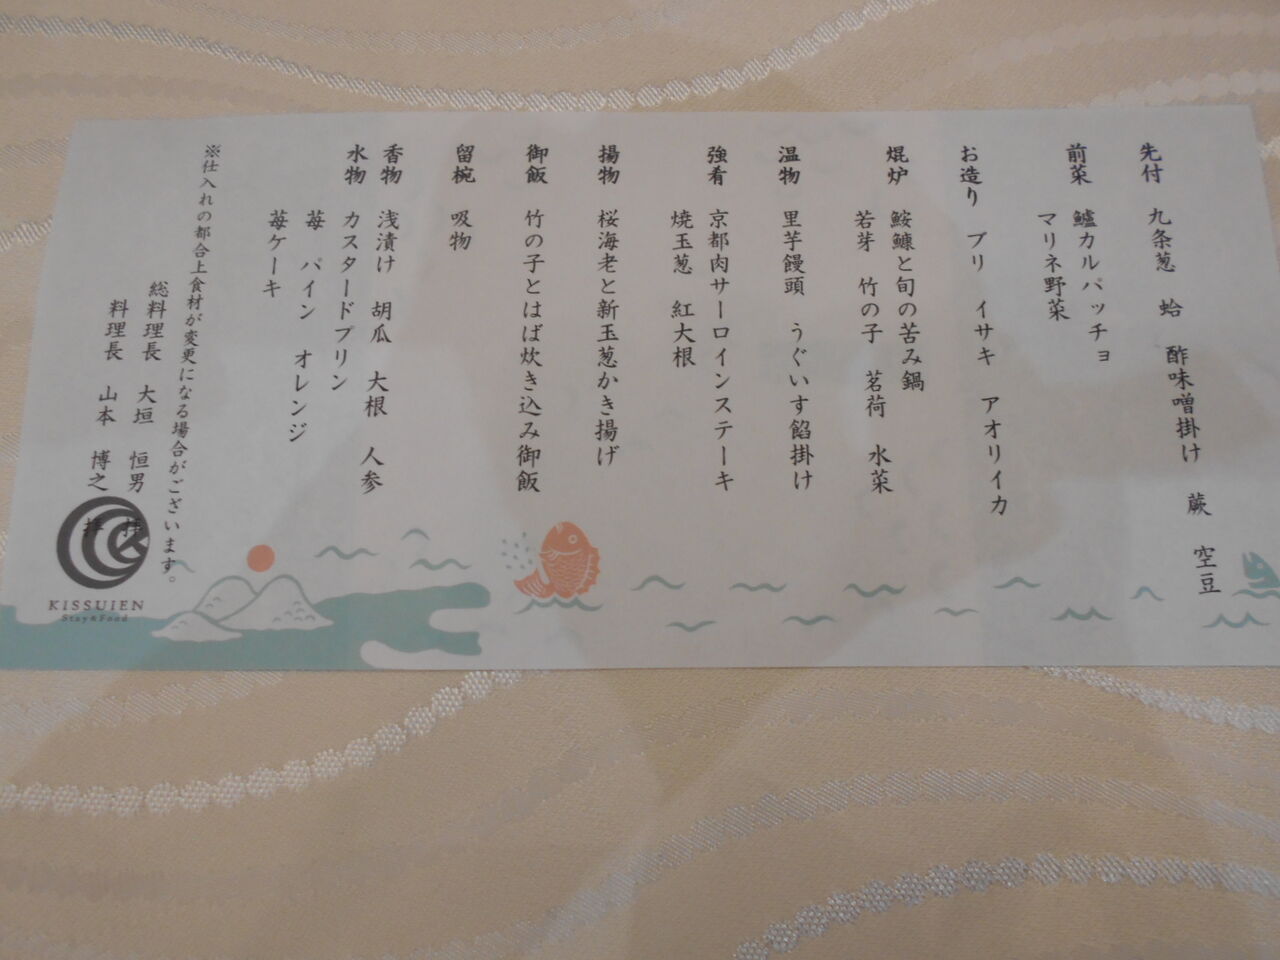 先付　九条葱　蛤　酢味噌掛け　蕨　空豆
前菜　鱸カルパッチョ
マリネ野菜
お造り　ブリ　イサキ　アオリイカ
焜炉　鮟鱇と旬の苦み鍋
若芽　竹の子　茗荷　水菜
温物　里芋饅頭　うぐいす餡掛け
強肴　京都肉サーロインステーキ
焼玉葱　紅大根
揚物　桜海老と新玉葱かき揚げ
御飯　竹の子とはば炊き込み御飯
留椀　吸物
香物　浅漬け　胡瓜　大根　人参
水物　カスタードプリン
苺　パイン　オレンジ
苺ケーキ
※仕入れの都合上食材が変更になる場合がございます。
総料理長　大垣　恒男　拝
料理長　山本　博之　拝
KISSUIEN
Stay&Food